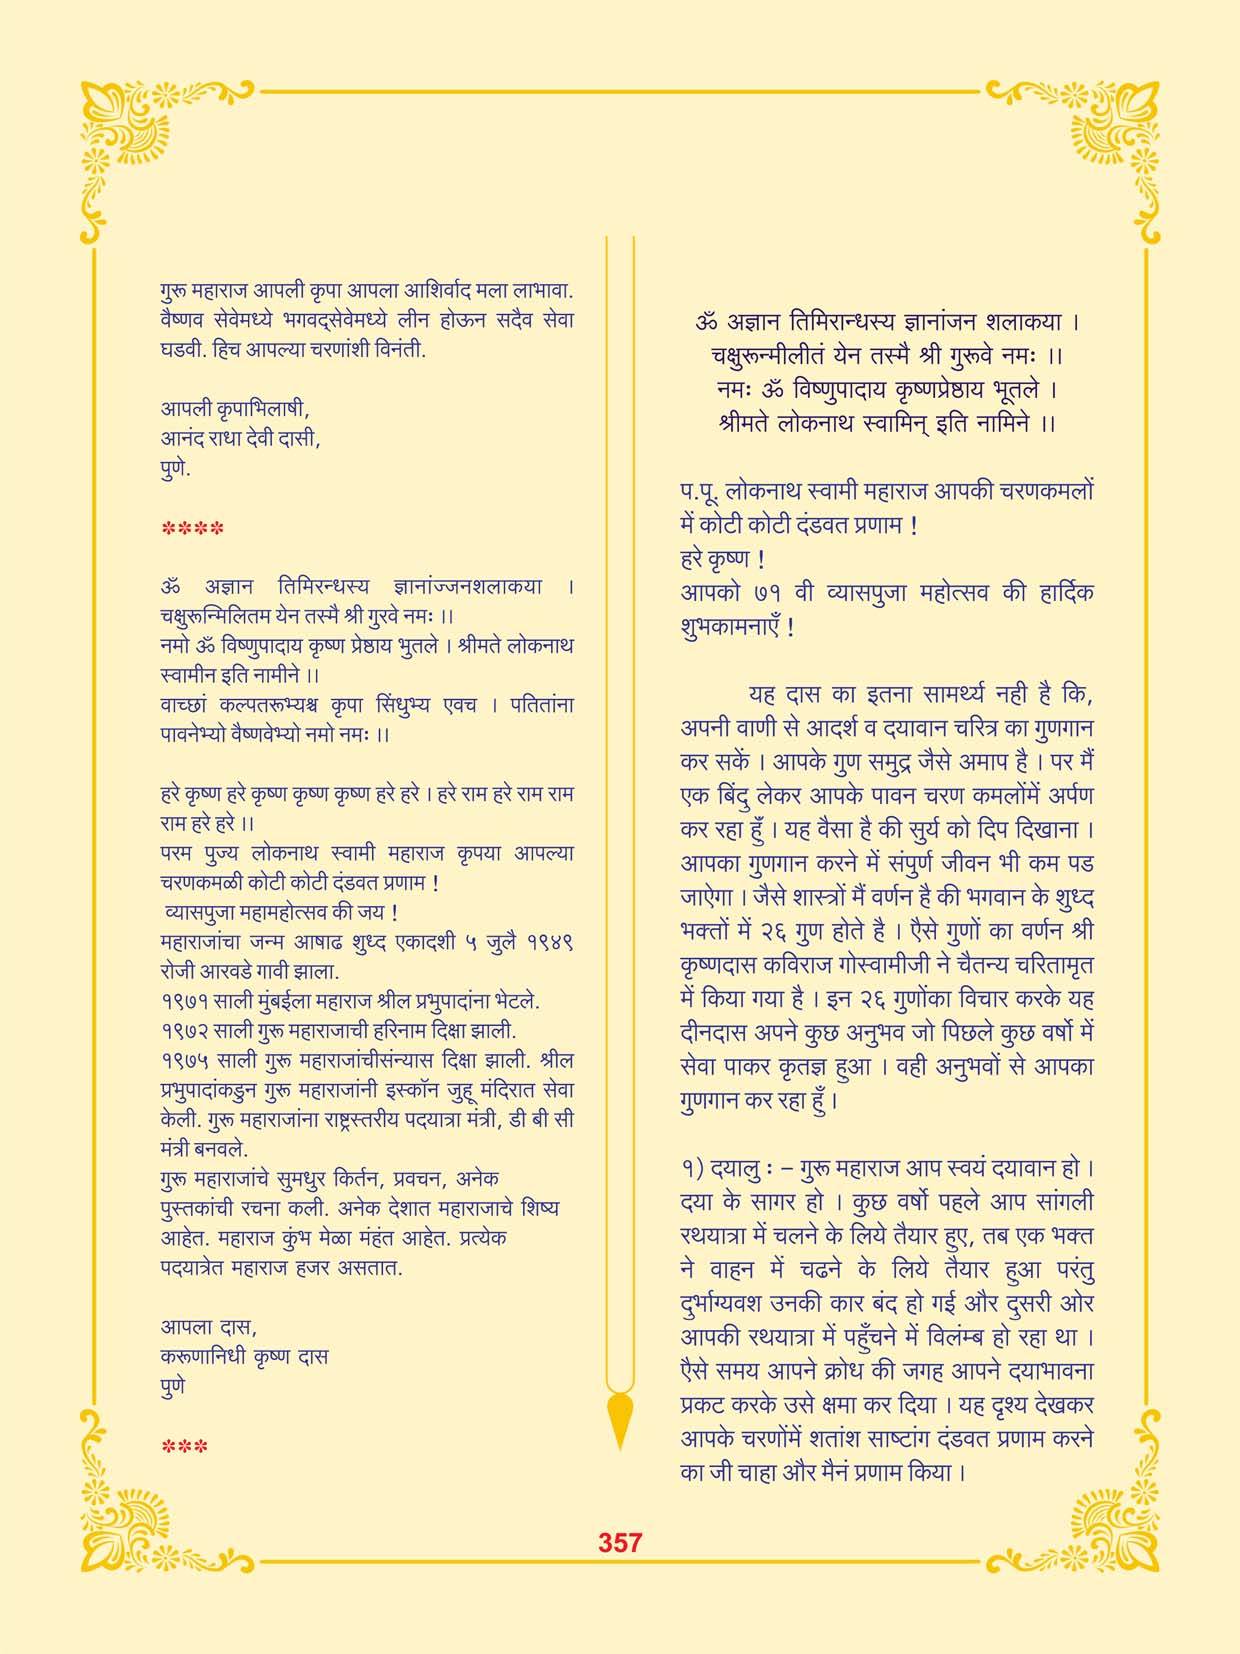 गुरू महाराज आपली कृपा आपला आशिर्वाद मला लाभावा.
वैष्णव सेवेमध्ये भगवद्सेवेमध्ये लीन होऊन सदैव सेवा
घडवी. हिच आपल्या चरणांशी विनंती.
आपली कृपाभिलाषी,
आनंद राधा देवी दासी,
पुणे.
****
ॐ अज्ञान तिमिरन्धस्य ज्ञानांज्जनशलाकया ।
चक्षुरून्मिलितम येन तस्मै श्री गुरवे नमः ।।
नमो ॐ विष्णुपादाय कृष्ण प्रेष्ठाय भुतले । श्रीमते लोकनाथ
स्वामीन इति नामीने ।।
वाच्छां कल्पतरूभ्यश्च कृपा सिंधुभ्य एवच । पतितांना
पावनेभ्यो वैष्णवेभ्यो नमो नमः ।।
हरे कृष्ण हरे कृष्ण कृष्ण कृष्ण हरे हरे । हरे राम हरे राम राम
राम हरे हरे ।।
परम पुज्य लोकनाथ स्वामी महाराज कृपया आपल्या
चरणकमळी कोटी कोटी दंडवत प्रणाम !
व्यासपुजा महामहोत्सव की जय !
महाराजांचा जन्म आषाढ शुध्द एकादशी ५ जुलै १९४९
रोजी आरवडे गावी झाला.
१९७१ साली मुंबईला महाराज श्रील प्रभुपादांना भेटले.
१९७२ साली गुरू महाराजाची हरिनाम दिक्षा झाली.
१९७५ साली गुरू महाराजांचीसंन्यास दिक्षा झाली. श्रील
प्रभुपादांकडुन गुरू महाराजांनी इस्कॉन जुहू मंदिरात सेवा
केली. गुरू महाराजांना राष्ट्रस्तरीय पदयात्रा मंत्री, डी बी सी
मंत्री बनवले.
गुरू महाराजांचे सुमधुर किर्तन, प्रवचन, अनेक
पुस्तकांची रचना कली. अनेक देशात महाराजाचे शिष्य
आहेत. महाराज कुंभ मेळा मंहंत आहेत. प्रत्येक
पदयात्रेत महाराज हजर असतात.
आपला दास,
करूणानिधी कृष्ण दास
पुणे
***
ॐ अज्ञान तिमिरान्धस्य ज्ञानांजन शलाकया ।
चक्षुरून्मीलीतं येन तस्मै श्री गुरूवे नमः ।।
नमः ॐ विष्णुपादाय कृष्णप्रेष्ठाय भूतले ।
श्रीमते लोकनाथ स्वामिन् इति नामिने ।।
प.पू. लोकनाथ स्वामी महाराज आपकी चरणकमलों
में कोटी कोटी दंडवत प्रणाम !
हरे कृष्ण !
आपको ७१ वी व्यासपुजा महोत्सव की हार्दिक
शुभकामनाएँ !
यह दास का इतना सामर्थ्य नही है कि,
अपनी वाणी से आदर्श व दयावान चरित्र का गुणगान
कर सकें । आपके गुण समुद्र जैसे अमाप है । पर मैं
एक बिंदु लेकर आपके पावन चरण कमलोंमें अर्पण
कर रहा हुँ । यह वैसा है की सुर्य को दिप दिखाना ।
आपका गुणगान करने में संपुर्ण जीवन भी कम पड
जाऐगा । जैसे शास्त्रों मैं वर्णन है की भगवान के शुध्द
भक्तों में २६ गुण होते है । एैसे गुणों का वर्णन श्री
कृष्णदास कविराज गोस्वामीजी ने चैतन्य चरितामृत
में किया गया है । इन २६ गुणोंका विचार करके यह
दीनदास अपने कुछ अनुभव जो पिछले कुछ वर्षो में
सेवा पाकर कृतज्ञ हुआ । वही अनुभवों से आपका
गुणगान कर रहा हुँ ।
१) दयालु : – गुरू महाराज आप स्वयं दयावान हो ।
दया के सागर हो । कुछ वर्षो पहले आप सांगली
रथयात्रा में चलने के लिये तैयार हुए, तब एक भक्त
ने वाहन में चढने के लिये तैयार हुआ परंतु
दुर्भाग्यवश उनकी कार बंद हो गई और दुसरी ओर
आपकी रथयात्रा में पहुँचने में विलंम्ब हो रहा था ।
एैसे समय आपने क्रोध की जगह आपने दयाभावना
प्रकट करके उसे क्षमा कर दिया । यह दृश्य देखकर
आपके चरणोंमें शतांश साष्टांग दंडवत प्रणाम करने
का जी चाहा और मैनं प्रणाम किया ।
357